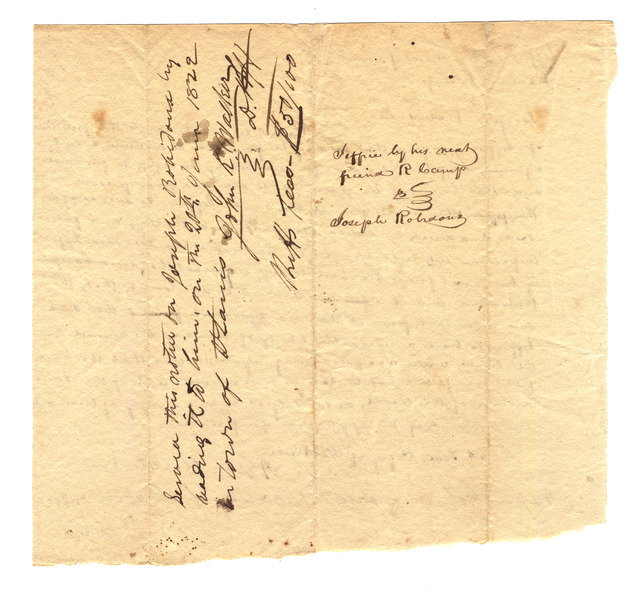 Served this notice on Joseph Robidoux by
reading it to him on the 20th June 1822
in town of St Louis John K. Walker
D. Shff
Shffs fees - $50/100
Jeffrie by his next
friend R Camp
vs
Joseph Robidoux